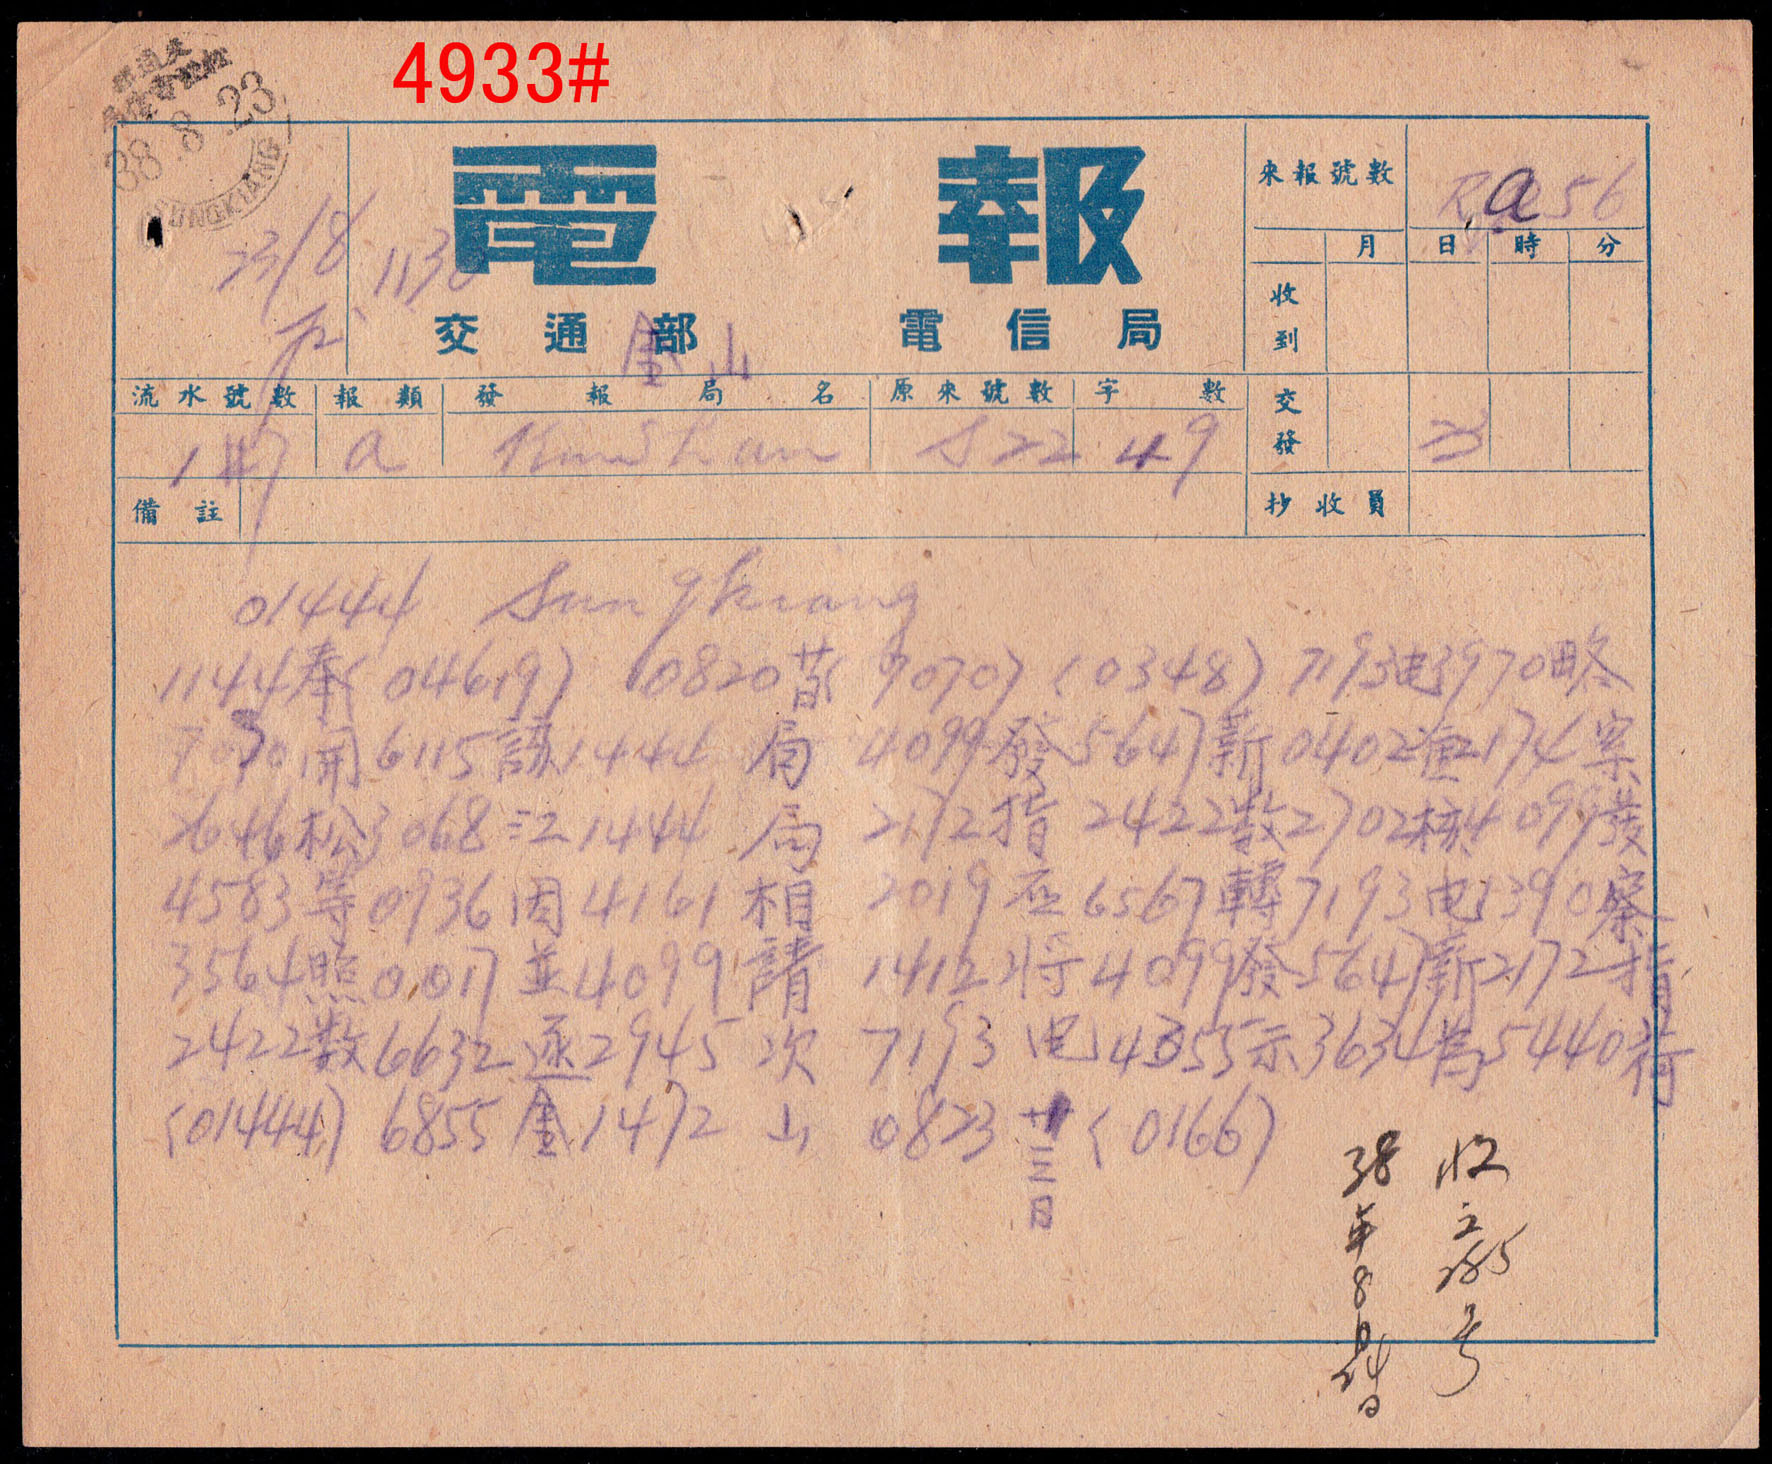 4933#
38.8.23
電報
來報號數
月 日 時 分
收到
23/8 1130
交通部 電信局
金山
流水號數 報類 發報局名 原來號數 字數
交發
a Kinshan S22 49
23
備註
抄收員
01444 Sungkiang
1144奉(04619) 0820 9070) (0348) 7193电3970略
7070開6115該1444局 4099發5647薪0402 2174案
2646松3068江1444局 2172指2422数2702核4099發
4583等0936因4161相 2019应6567轉7193电1390察
3564照0017並4099請 1412将4099發5647薪2172指
2422数6632逐2945次 7193电4355示3634為5440荷
(01444) 6855金1472山 0823廿三日(0166)
38年8月24日